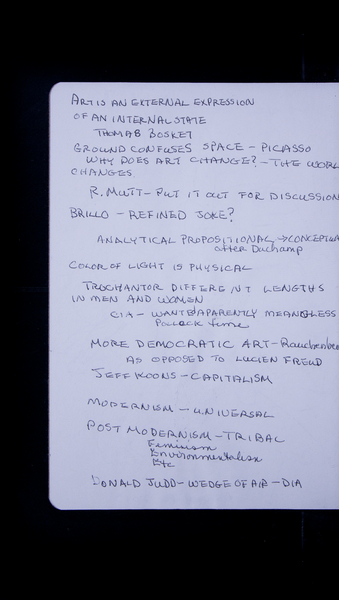 ART IS AN EXTERNAL EXPRESSION
OF AN INTERNAL STATE
THOMAS BOSKET
GROUND CONFUSES SPACE - PICASSO
WHY DOES ART CHANGE? - THE WORL
CHANGES
R. MUTT - PUT IT OUT FOR DISCUSSION
BRILLO - REFINED JOKE?
ANALYTICAL PROPOSITIONAL → CONCEPTUA
after Duchamp
COLOR OF LIGHT IS PHYSICAL
TROCHANTOR DIFFERENT LENGTHS
IN MEN AND WOMEN
CIA - WANTED APARENTLY MEANINGLESS
Pollock time
MORE DEMOCRATIC ART - Rauchenber
AS OPPOSED TO LUCIEN FREUD
JEFF KOONS - CAPITALISM
MODERNISM - UNIVERSAL
POST MODERNISM - TRIBAL
Feminism
Environmentalism
Etc
DONALD JUDD - WEDGE OF AIR - DIA